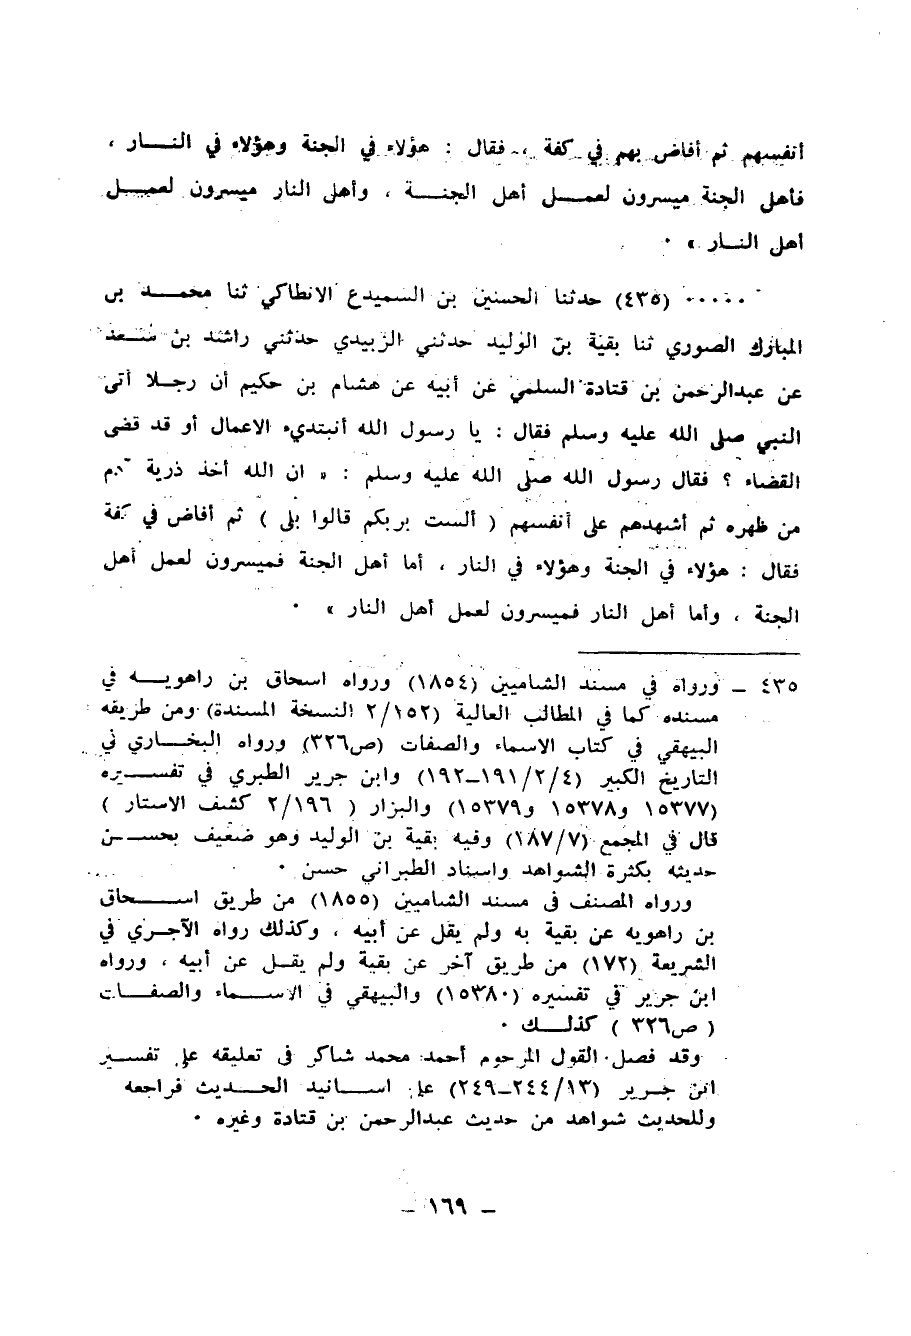 أنفسهم ثم أفاض بهم في كفة ، فقال : هؤلاء في الجنة وهؤلاء في النــار ،
فأهل الجنة ميسرون لعمــل أهل الجنــة ، وأهل النار ميسرون لعمــل
أهل النــار » ٠
٠٠٠٠٠ (٤٣٥) حدثنا الحسين بن السميدع الانطاكي ثنا محمــد بن
المبارك الصوري ثنا بقية بن الوليد حدثني الزبيدي حدثني راشد بن سعد
عن عبدالرحمن بن قتادة السلمي عن أبيه عن هشام بن حكيم أن رجلا أتى
النبي صلى الله عليه وسلم فقال : يا رسول الله أنبتديء الاعمال أو قد قضى
القضاء ؟ فقال رسول الله صلى الله عليه وسلم : « ان الله أخذ ذرية آدم
من ظهره ثم أشهدهم على أنفسهم ( ألست بربكم قالوا بلى ) ثم أفاض في كفة
فقال : هؤلاء في الجنة وهؤلاء في النار ، أما أهل الجنة فميسرون لعمل أهل
الجنة ، وأما أهل النار فميسرون لعمل أهل النار » ٠
٤٣٥ ــ ورواه في مسند الشاميين (١٨٥٤) ورواه اسحاق بن راهويــه في
مسنده كما في المطالب العالية (٢/١٥٢ النسخة المسندة) ومن طريقه
البيهقي في كتاب الاسماء والصفات (ص٣٢٦) ورواه البخــاري في
التاريخ الكبير (١٩١/٢/٤ــ١٩٢) وابن جرير الطبري في تفســيره
(١٥٣٧٧ و١٥٣٧٨ و١٥٣٧٩) والبزار ( ٢/١٩٦ كشف الاستار )
قال في المجمع (١٨٧/٧) وفيه بقية بن الوليد وهو ضعيف يحســن
حديثه بكثرة الشواهد واسناد الطبراني حسن ٠
ورواه المصنف فى مسند الشاميين (١٨٥٥) من طريق اســحاق
بن راهويه عن بقية به ولم يقل عن أبيه ، وكذلك رواه الآجــري في
الشريعة (١٧٢) من طريق آخر عن بقية ولم يقــل عن أبيه ، ورواه
ابن جرير في تفسيره (١٥٣٨٠) والبيهقي في الاســماء والصفــات
( ص٣٢٦ ) كذلــك ٠
وقد فصل القول المرحوم أحمد محمد شاكر فى تعليقه على تفســير
ابن جــرير (٢٤٤/١٣ــ٢٤٩) على اســانيد الحــديث فراجعه
وللحديث شواهد من حديث عبدالرحمن بن قتادة وغيره ٠
ــ ١٦٩ ــ